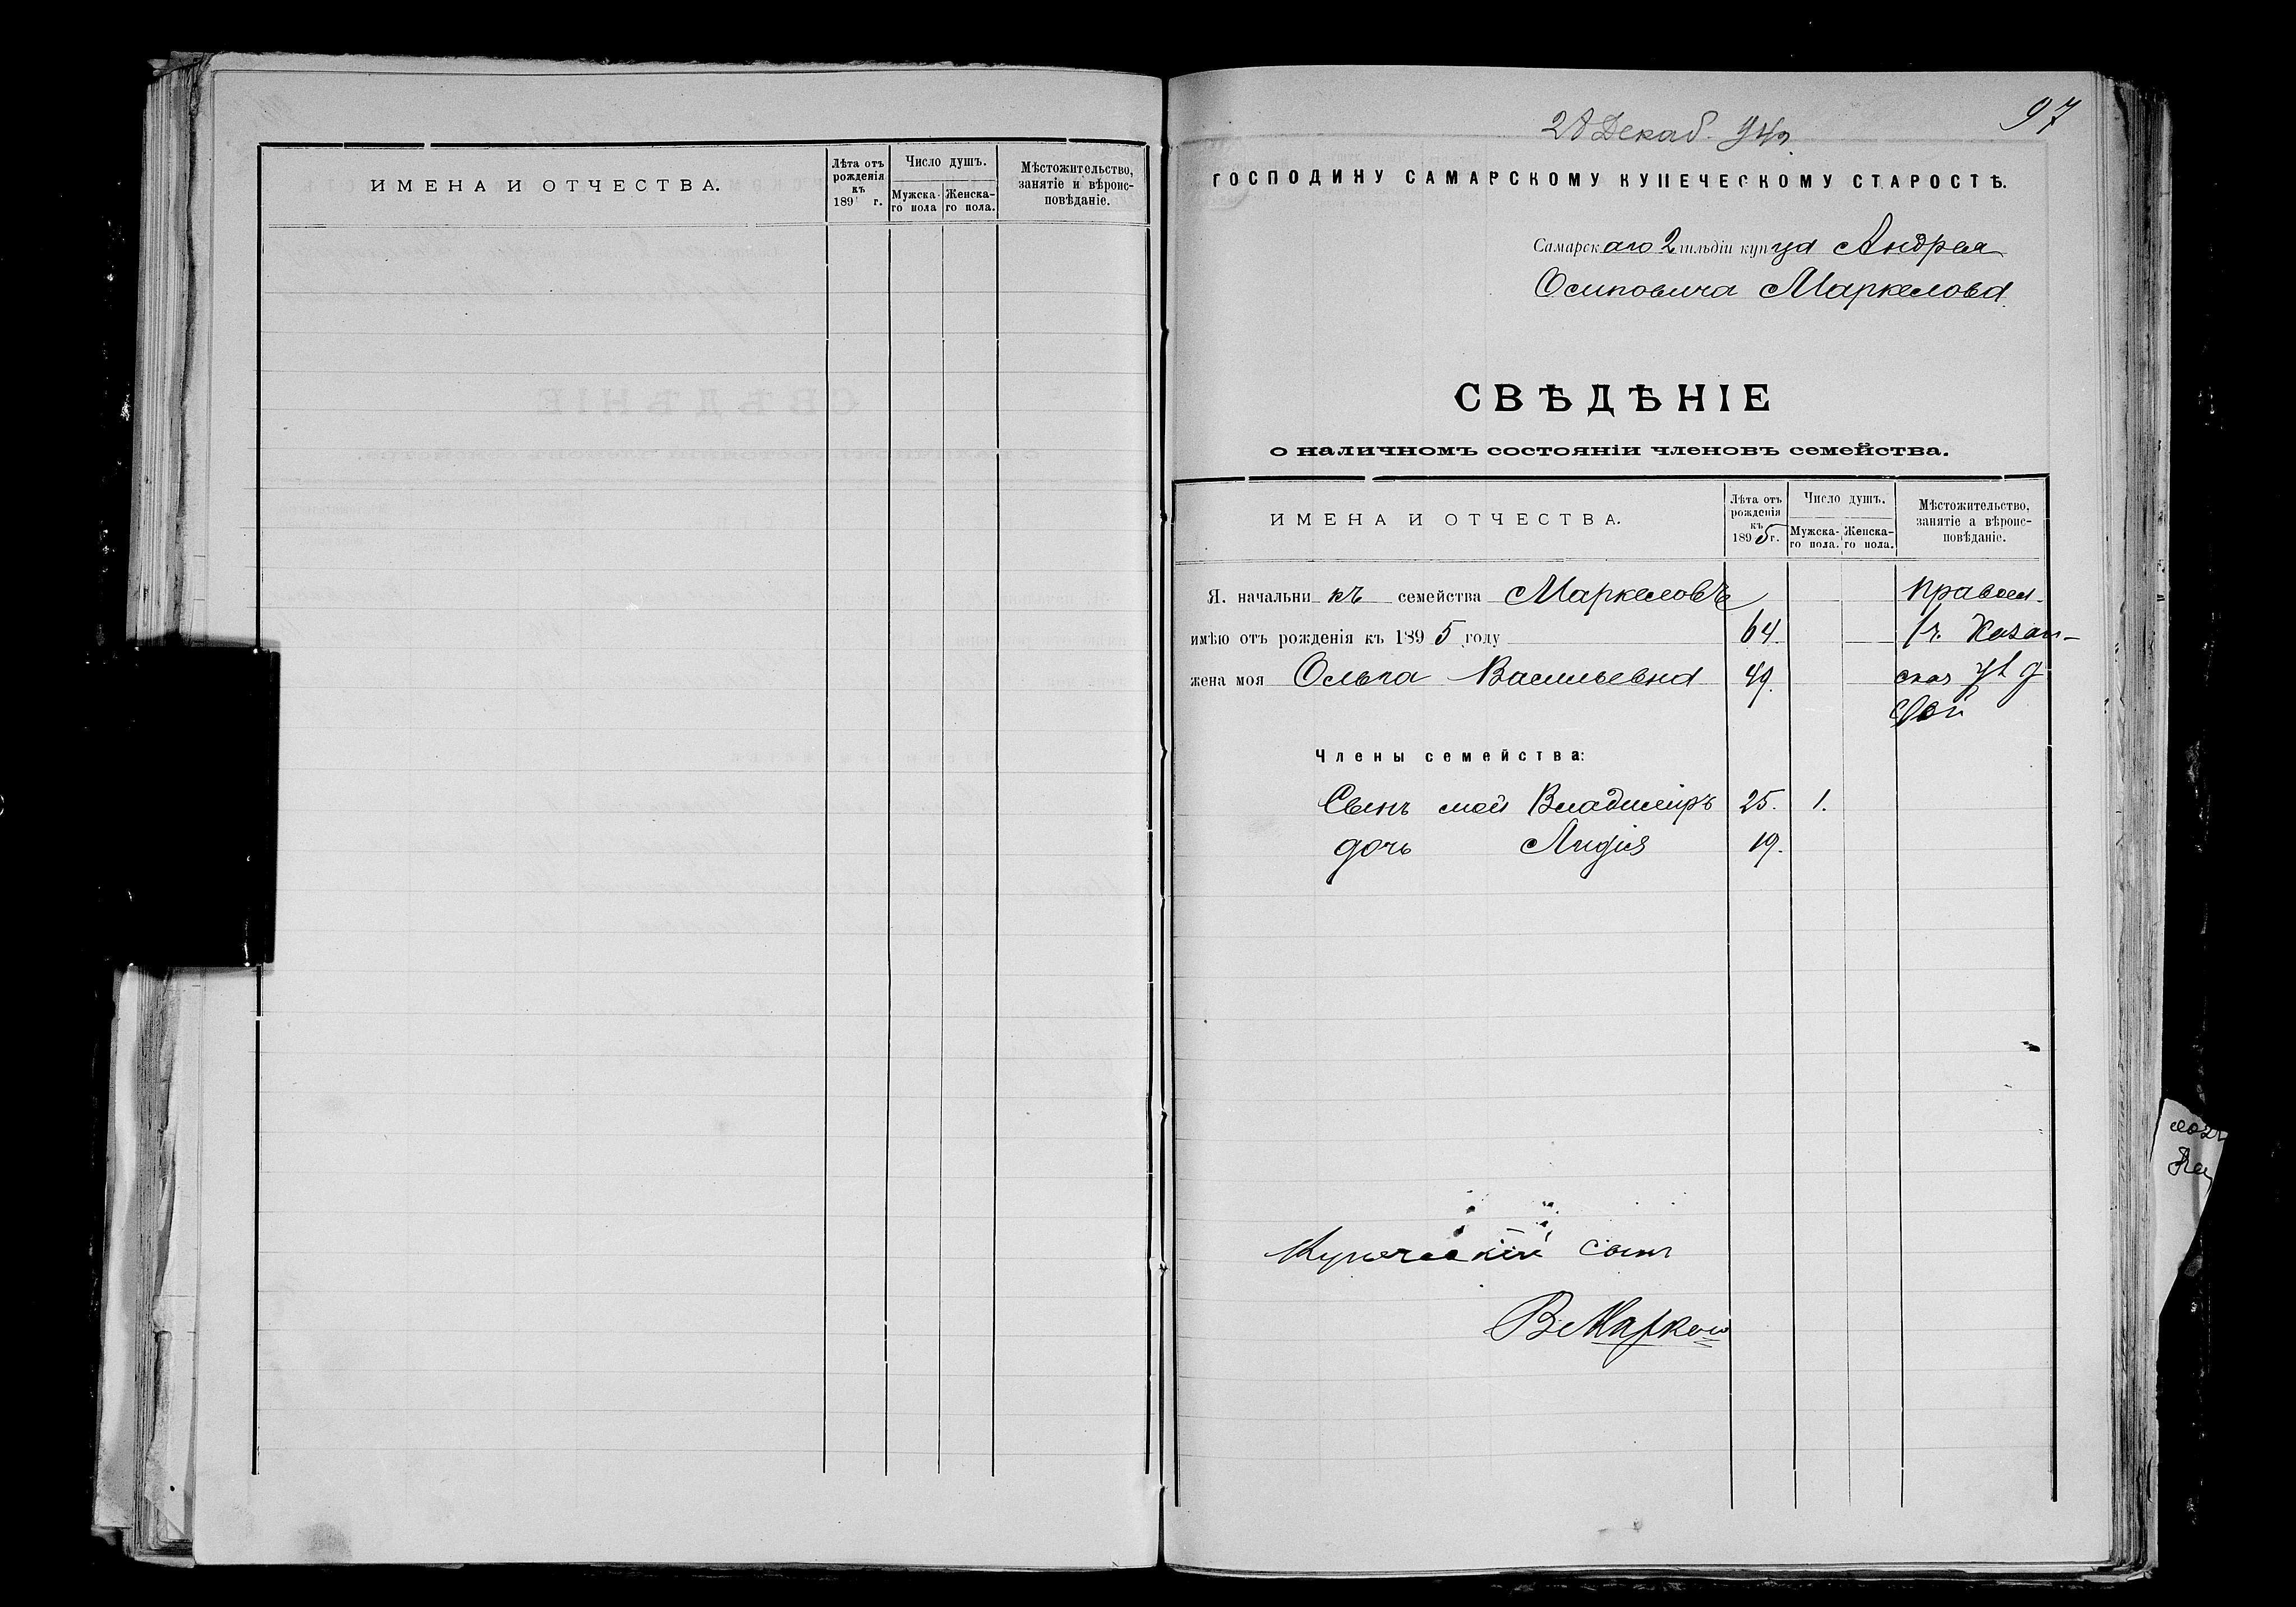 ИМЕНА И ОТЧЕСТВА.
Лѣта отъ рожденія къ 189 г.
Число душъ.
Мужска-го пола
Женска-го пола.
Мѣстожительство, занятіе и вѣроис-повѣданіе.
97
28 Декаб. 94 г.
ГОСПОДИНУ САМАРСКОМУ КУПЕЧЕСКОМУ СТАРОСТѢ.
Самарскаго 2 гильдіи купца Андрея
Осиповича Маркелова.
СВѢДѢНІЕ
о наличномъ состояніи членовъ семейства.
ИМЕНА И ОТЧЕСТВА.
Лѣта отъ рожденія къ 1895 г.
Число душъ.
Мужска-го пола.
Женска-го пола.
Мѣстожительство, занятіе а вѣроис-повѣданіе.
Я. начальникъ семейства Маркеловъ правосл.
имѣю отъ рожденія къ 1895 году 64 Казан-
жена моя Ольга Васильевна 49. ская
Члены семейства:
Сынъ мой Владиміръ 25. 1.
дочь Лидія 19.
Купеческій сынъ
В Маркело